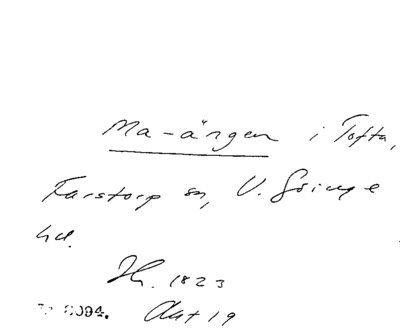 Ma-ängen i Tofta,
Farstorp sn, V. Göinge
hd.
Jh. 1823
8094. Akt 19